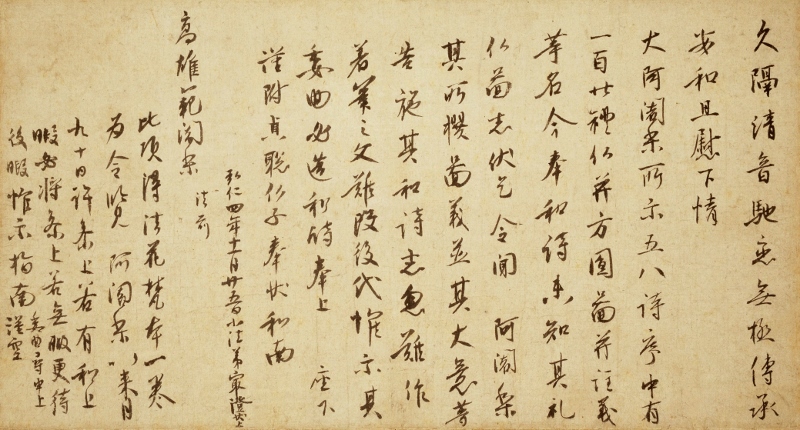 久隔清音馳恋无極傳承
安和且慰下情
大阿闍梨所示五八詩序中有
一百廿禮仏并方圓圖并註義
等名今奉和詩未知其礼
仏圖者伏乞令聞 阿闍梨
其所撰圖義并其大意等
告施其和詩者忽難作
著筆之文難改後代惟示其
委曲必造和詩奉上 座下
謹附貞聡仏子奉状和南
弘仁四年十一月廿五日小法弟最澄状上
高雄範闍梨 法前
此頃得法花梵本一巻
為令覧 阿闍梨以来月
九十日許参上若有和上
暇必将参上若無暇更待
後暇惟示指南 謹空
委曲尋申上